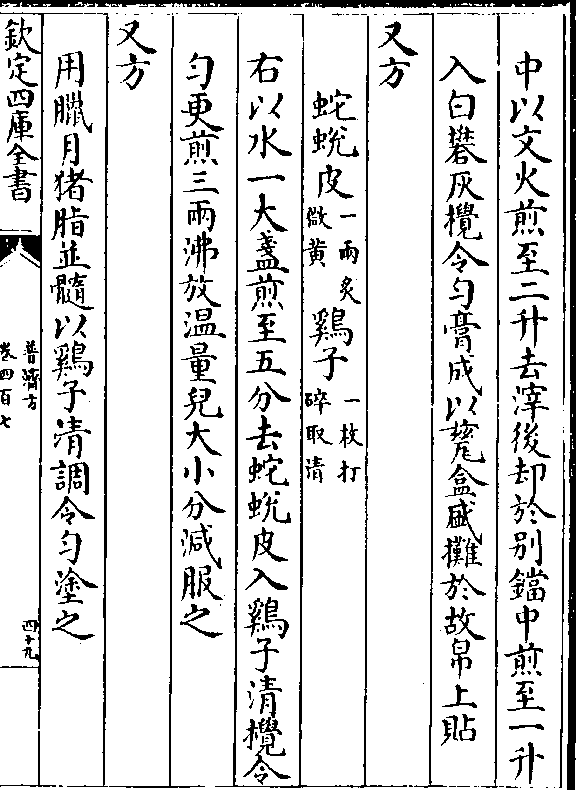 中以文火煎至二升去滓後却於别鐺中煎至一升
入白礬灰攪令勻膏成以甆盒盛攤於故帛上貼
又方
蛇蛻皮一兩炙微黄 鷄子一枚打碎取清
右以水一大盞煎至五分去蛇蛻皮入鷄子清攪令
勻更煎三兩沸放温量兒大小分減服之
又方
用臘月猪脂並髓以鷄子清調令勻塗之
欽定四庫全書
普濟方
卷四百七
四十九